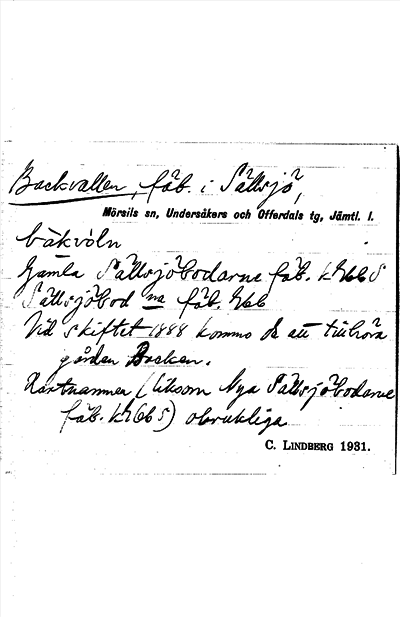 Backvallen, fäb. i Sällsjö,
Mörsils sn, Undersåkers och Offerdals tg, Jämtl. l.
bàkvò̀ln
Gamla Sällsjöbodarne fäb. k 766 S
Sällsjöbod na fäb. 766
Vid skiftet 1888 kommo de att tillhöra
gården Backen.
Kartnamnen (liksom Nya Sällsjöbodarne
fäb. k 766 S) obrukliga
C. LINDBERG 1931.